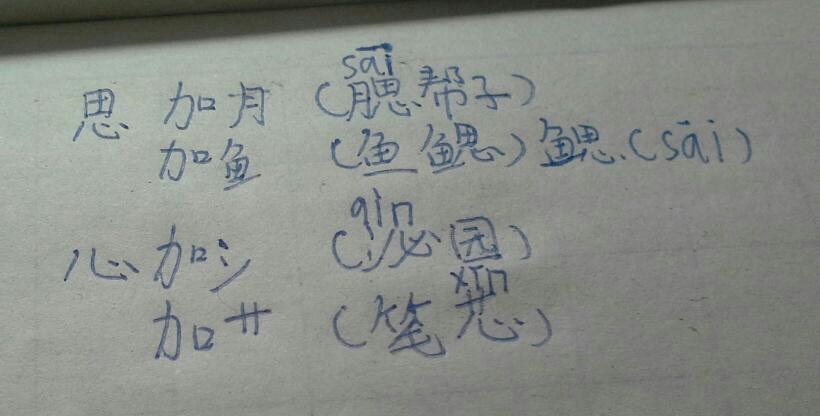 sāi
思 加月 (腮帮子)
加鱼 (鱼鳃) 鳃.(sāi)
qìn
心 加氵 (沁园)
xīn
加艹 (笔芯)